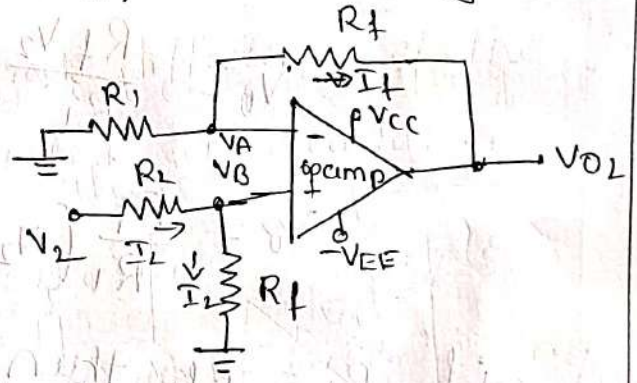 Rf
If
R1
VCC
VA
-
opamp
VO2
R2
VB
+
V2
I2
-VEE
I2
Rf